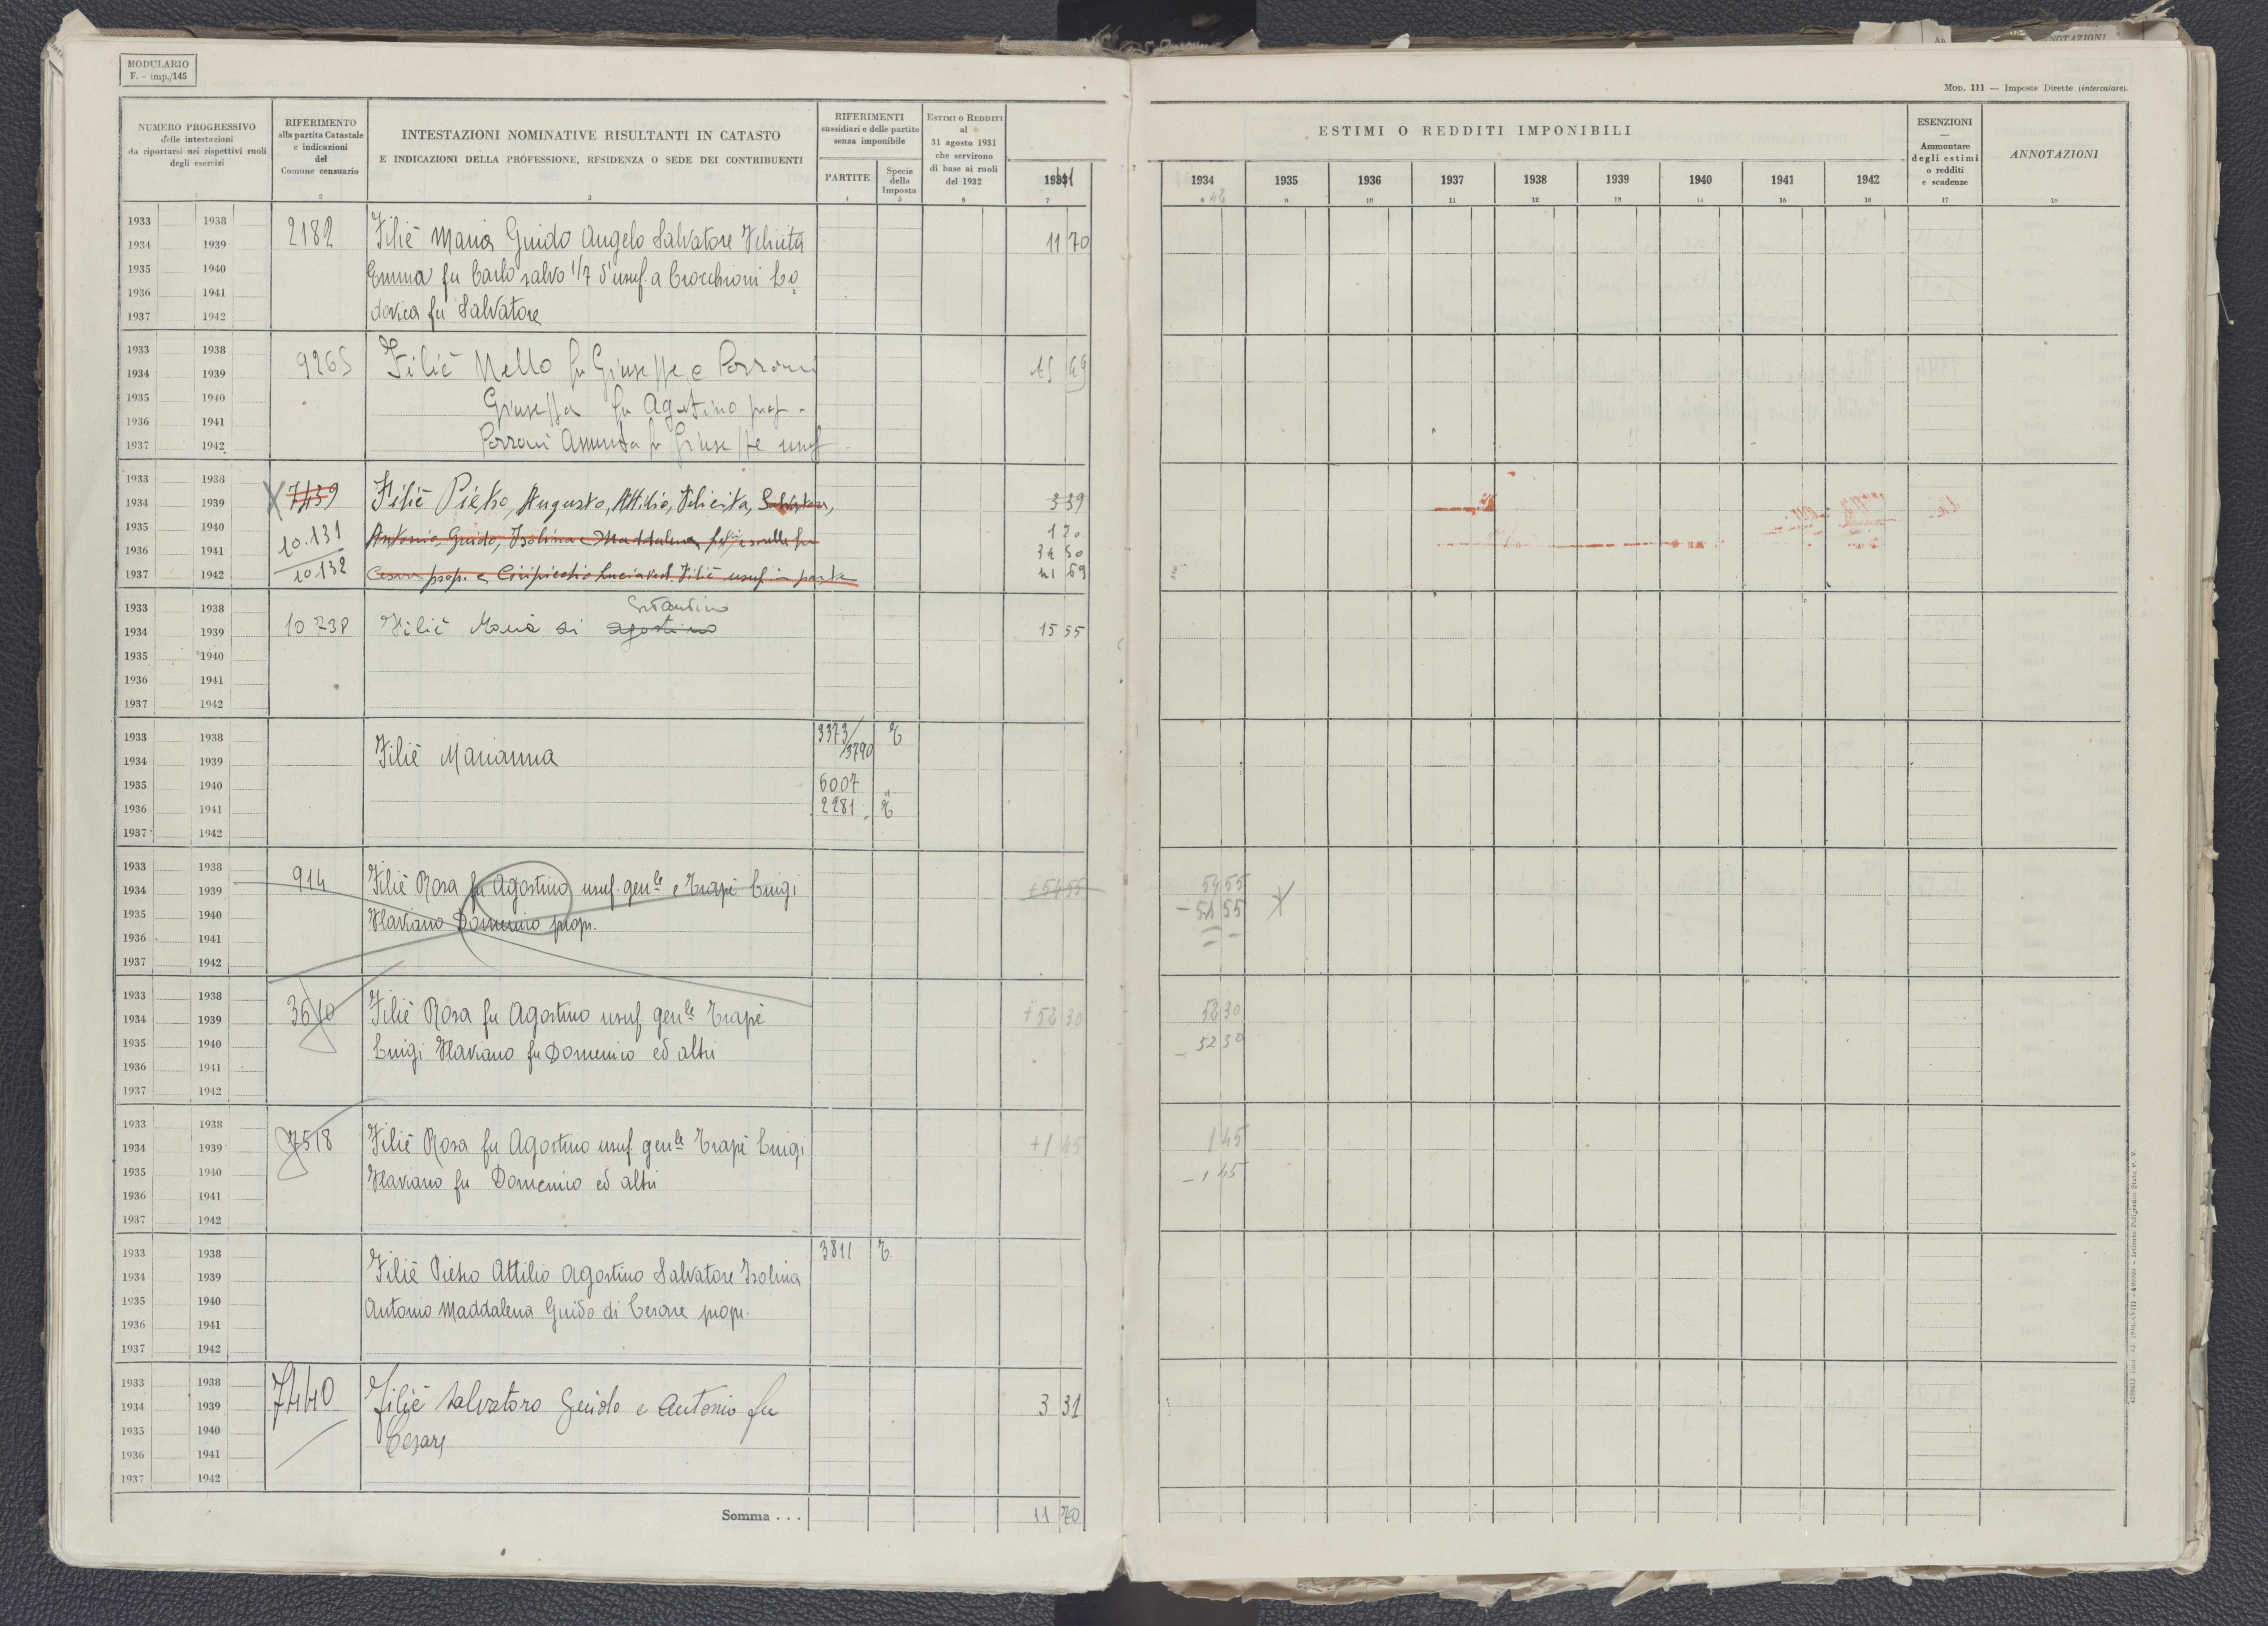 MODULARIO
F. - imp./145
MOD. 111 — Imposte Dirette (intercalare).
NUMERO PROGRESSIVO
delle intestazioni
da riportarsi nei rispettivi ruoli
degli esercizi
RIFERIMENTO
alla partita Catastale
e indicazioni
del
Comune censuario
2
INTESTAZIONI NOMINATIVE RISULTANTI IN CATASTO
E INDICAZIONI DELLA PROFESSIONE, RESIDENZA O SEDE DEI CONTRIBUENTI
3
RIFERIMENTI
sussidiari e delle partite
senza imponibile
PARTITE
4
Specie
della
Imposta
5
ESTIMI O REDDITI
al
31 agosto 1931
che servirono
di base ai ruoli
del 1932
6
7
ESTIMI O REDDITI IMPONIBILI
1934 1935 1936 1937 1938 1939 1940 1941 1942
8 42 9 10 11 12 13 14 15 16
ESENZIONI
—
Ammontare
degli estimi
o redditi
e scadenze
17
ANNOTAZIONI
18
1933 1938 2182 Filiè Maria Guido Angelo Salvatore Felicita 11 70
1934 1939
1935 1940 Emma fu Carlo salvo 1/7 d'usuf. a Crocchioni Lo
1936 1941
1937 1942 dovica fu Salvatore
1933 1938 9265 Filiè Nello fu Giuseppe e Porroni
1934 1939
1935 1940 Giuseppa fu Agostino prop.
1936 1941
1937 1942 Porroni Assunta fu Giuseppe usuf
1933 1938
1934 1939 7439 Filiè Pietro, Augusto, Attilio, Felicita, Salvatore, 3 39
1935 1940 10.131 Antonio, Guido, Isolina e Maddalena fu 1 20
1936 1941 34 50
1937 1942 10.132 Cesare prop. e Ciripicchio Lucia ved. Filiè usuf. in parte 41 69
1933 1938 Costantino
1934 1939 10 238 Filiè Maria di Agostino 15 55
1935 1940
1936 1941
1937 1942
1933 1938 3373/3790 T
1934 1939 Filiè Marianna
1935 1940 6007 "
1936 1941 2281 T
1937 1942
1933 1938 914 Filiè Rosa fu Agostino usuf. genle e Trapè Luigi + 54 55 54 55
1934 1939
1935 1940 Flaviano Domenico prop. - 54 55
1936 1941
1937 1942
1933 1938
1934 1939 3610 Filiè Rosa fu Agostino usuf. genle Trapè + 52 30 52 30
1935 1940 Luigi Flaviano fu Domenico ed altri - 52 30
1936 1941
1937 1942
1933 1938
1934 1939 7518 Filiè Rosa fu Agostino usuf. genle Trapè Luigi + 1 45 1 45
1935 1940 Flaviano fu Domenico ed altri - 1 45
1936 1941
1937 1942
1933 1938 3811 T
1934 1939 Filiè Pietro Attilio Agostino Salvatore Isolina
1935 1940 Antonio Maddalena Guido di Cesare prop.
1936 1941
1937 1942
1933 1938
1934 1939 7440 Filiè Salvatore Guido e Antonio fu 3 31
1935 1940 Cesare
1936 1941
1937 1942
Somma . . . 11 70